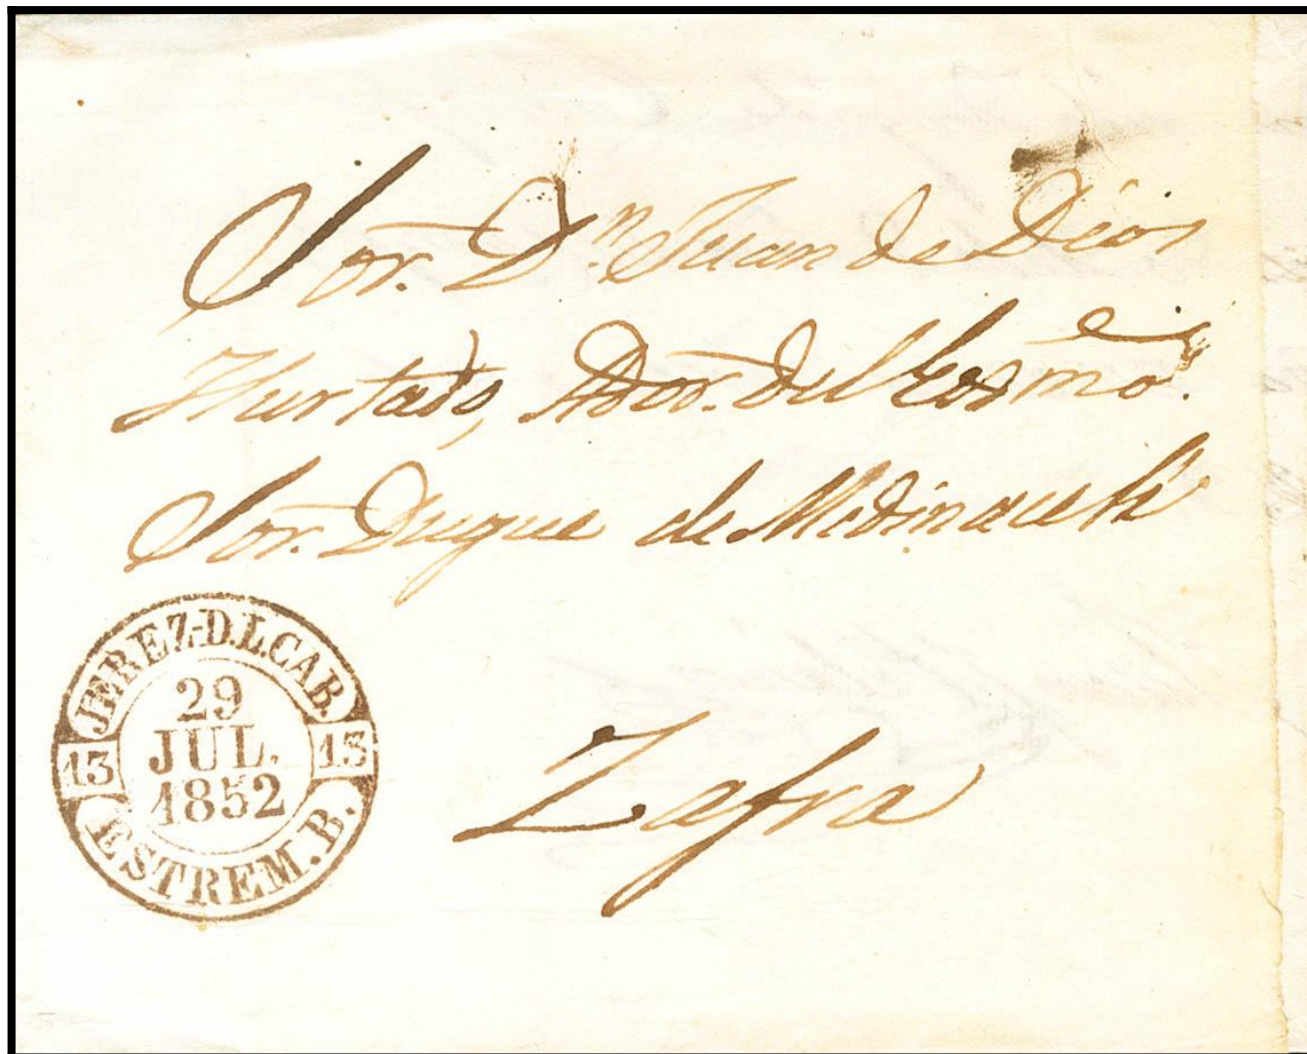 Sor. Dn. Juan de Dios
Hurtado, Ador. del Exsmõ.
Sor. Duque de Medinaceli
Zafra
JEREZ-D.L.CAB.
13 29 13
JUL.
1852
ESTREM.B.